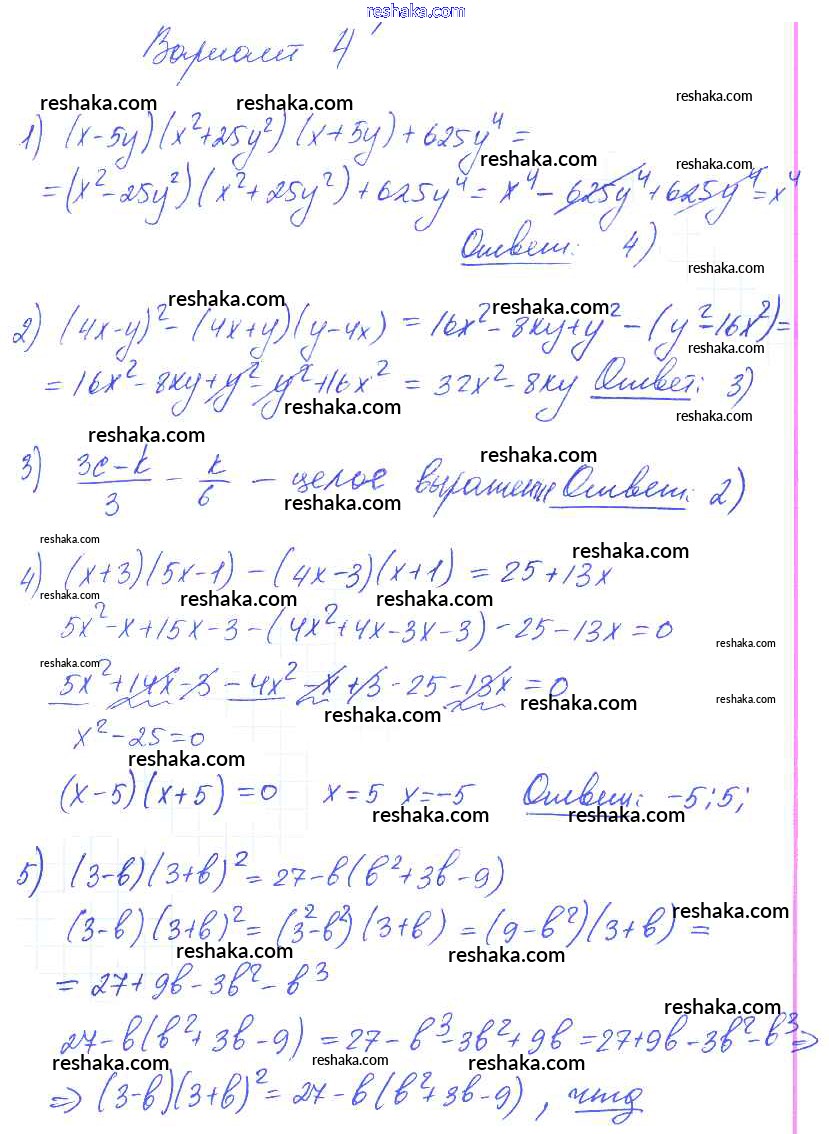 reshaka.com
Вариант 4
reshaka.com reshaka.com reshaka.com
1) (x-5y)(x²+25y²)(x+5y)+625y⁴=
reshaka.com reshaka.com
=(x²-25y²)(x²+25y²)+625y⁴=x⁴-625y⁴+625y⁴=x⁴
Ответ: 4)
reshaka.com
reshaka.com reshaka.com
2) (4x-y)²-(4x+y)(y-4x)=16x²-8xy+y²-(y²-16x²)=
reshaka.com
=16x²-8xy+y²-y²+16x²=32x²-8xy Ответ: 3)
reshaka.com reshaka.com
reshaka.com reshaka.com
3) (3c-k)/3 - k/6 - целое выражение Ответ: 2)
reshaka.com reshaka.com
reshaka.com reshaka.com
4) (x+3)(5x-1)-(4x-3)(x+1)=25+13x
reshaka.com reshaka.com reshaka.com
5x²-x+15x-3-(4x²+4x-3x-3)-25-13x=0
reshaka.com reshaka.com
5x²+14x-3-4x²-x+3-25-13x=0
reshaka.com reshaka.com reshaka.com
x²-25=0
reshaka.com
(x-5)(x+5)=0 x=5 x=-5 Ответ: -5; 5;
reshaka.com reshaka.com
5) (3-b)(3+b)²=27-b(b²+3b-9)
reshaka.com
(3-b)(3+b)²=(3²-b²)(3+b)=(9-b²)(3+b)=
reshaka.com reshaka.com
=27+9b-3b²-b³
reshaka.com
27-b(b²+3b-9)=27-b³-3b²+9b=27+9b-3b²-b³⇒
reshaka.com reshaka.com reshaka.com
⇒(3-b)(3+b)²=27-b(b²+3b-9), чтд